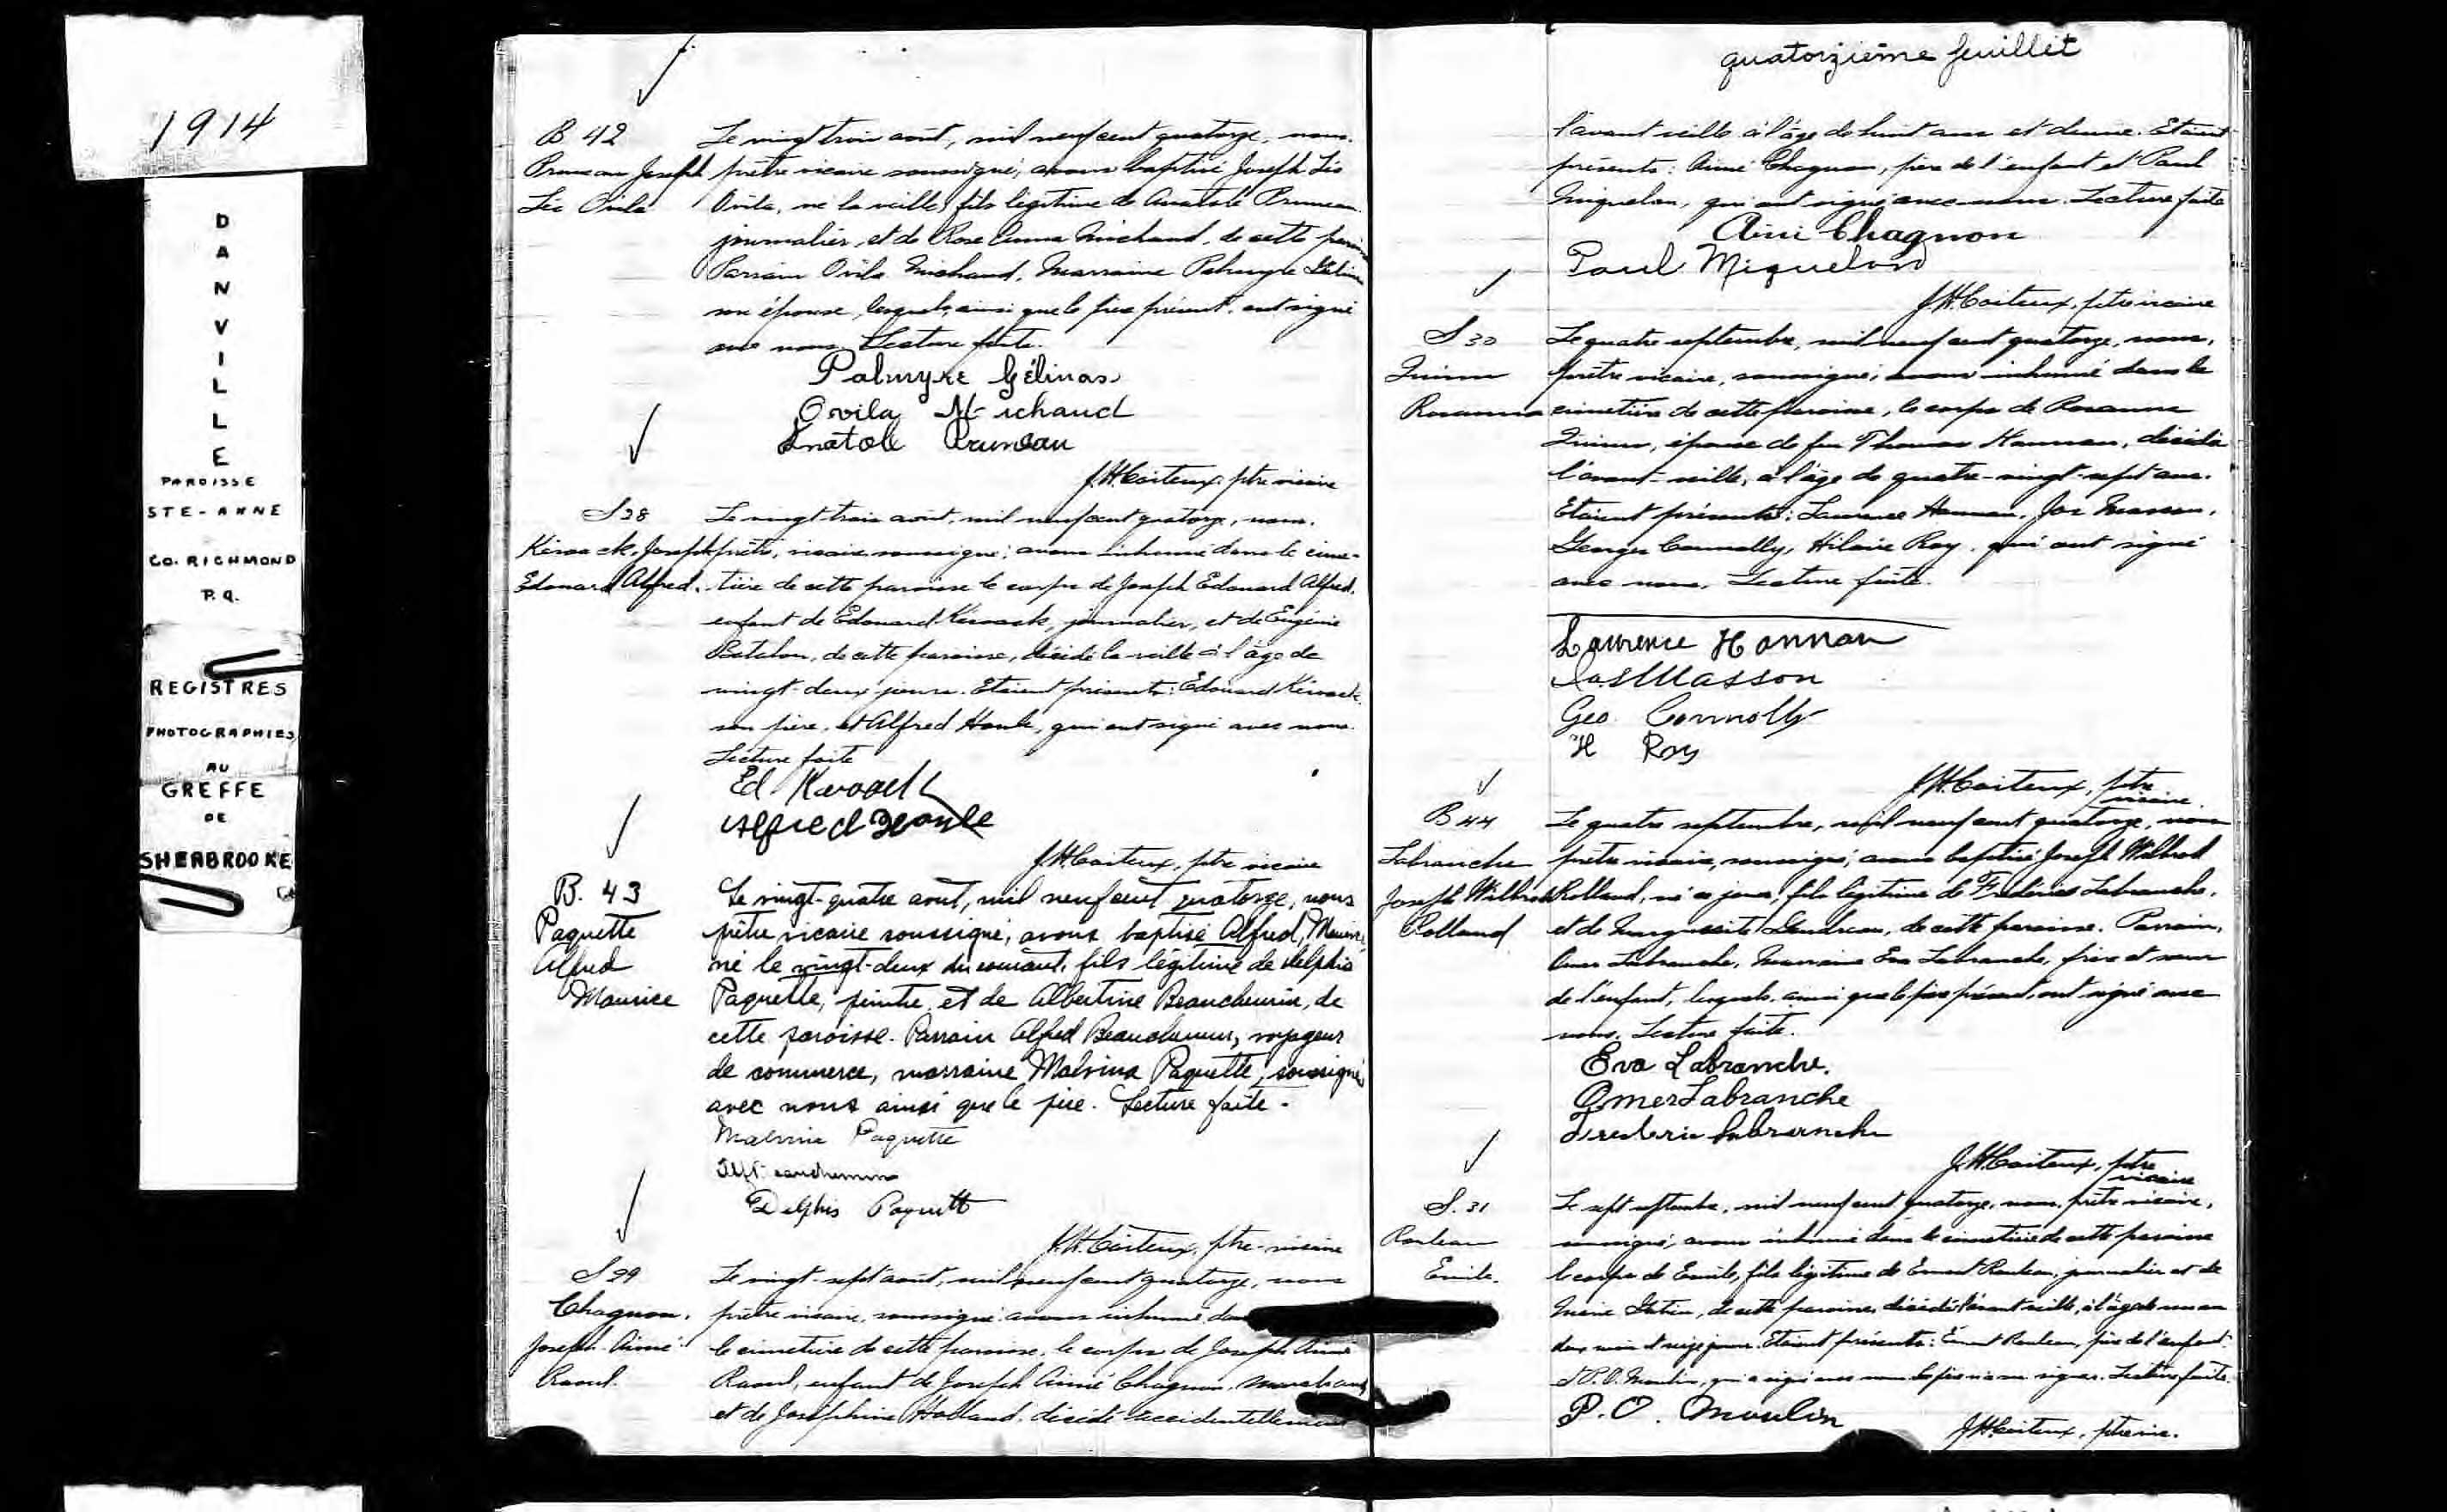 1914
DANVILLE
PAROISSE
STE-ANNE
CO. RICHMOND
P.Q.
REGISTRES
PHOTOGRAPHIES
AU
GREFFE
DE
SHERBROOKE
B 42
Pruneau Joseph
Léo Ovila
Le vingt trois août, mil neuf cent quatorze, nous,
prêtre vicaire soussigné, avons baptisé Joseph Léo
Ovila, né la veille, fils légitime de Anatole Pruneau
journalier, et de Rose Anna Michaud, de cette paroisse
Parrain Ovila Michaud, Marraine Palmyre Gélinas
son épouse, lesquels, ainsi que le père présent, ont signé
avec nous. Lecture faite.
Palmyre Gélinas
Ovila Michaud
Anatole Pruneau
J.H. Coiteux, ptre vicaire
S 28
Kérouack, Joseph
Edouard Alfred.
Le vingt trois août, mil neuf cent quatorze, nous,
prêtre, vicaire soussigné, avons inhumé dans le cime-
tière de cette paroisse le corps de Joseph Edouard Alfred,
enfant de Edouard Kérouack, journalier, et de Eugénie
de cette paroisse, décédé la veille à l'âge de
vingt-deux jours. Etaient présents: Edouard Kérouack
son père, et Alfred Houle, qui ont signé avec nous.
Lecture faite
Ed. Kerouack
Alfred Houle
J.H. Coiteux, ptre vicaire
B. 43
Paquette
Alfred
Maurice
Le vingt-quatre aout, mil neuf cent quatorze, nous
prêtre vicaire soussigné, avons baptisé Alfred, Maurice
né le vingt-deux du courant, fils légitime de Delphis
Paquette, peintre, et de Albertine Beauchemin, de
cette paroisse. Parrain Alfred Beauchemin, voyageur
de commerce, marraine Malvina Paquette, soussignés
avec nous ainsi que le père. Lecture faite.
Malvina Paquette
Delphis Paquette
J.H. Coiteux, ptre-vicaire
S 29
Chagnon,
Joseph-Aimé
Raoul.
Le vingt-sept août, mil neuf cent quatorze, nous
prêtre vicaire, soussigné avons inhumé dans
le cimetière de cette paroisse, le corps de Joseph Aimé
Raoul, enfant de Joseph Aimé Chagnon, marchand
et de Joséphine Holland, décédé accidentellement
quatorzième feuillet
l'avant veille à l'âge de huit ans et demie. Etaient
présents: Aimé Chagnon, père de l'enfant et Paul
Miquelon, qui ont signé avec nous. Lecture faite
Aimé Chagnon
Paul Miquelon
J.H. Coiteux, ptre vicaire
S 30
Quinn
Rosanna
Le quatre septembre, mil neuf cent quatorze, nous,
prêtre vicaire, soussigné, avons inhumé dans le
cimetière de cette paroisse, le corps de Rosanna
Quinn, épouse de feu Thomas Hannan, décédée
l'avant-veille, à l'âge de quatre-vingt-sept ans.
Etaient présents: Laurence Hannan, Jos Masson,
Georges Connolly, Hilaire Roy, qui ont signé
avec nous. Lecture faite.
Laurence Hannan
Jos Masson
Geo. Connolly
H Roy
J.H. Coiteux, ptre
vicaire.
B 44
Labranche
Joseph Wilbrod
Rolland
Le quatre septembre, mil neuf cent quatorze, nous
prêtre vicaire, soussigné, avons baptisé Joseph Wilbrod
Rolland, né ce jour, fils légitime de Frédéric Labranche,
et de Marguerite Gendreau, de cette paroisse. Parrain,
Omer Labranche, Marraine Eva Labranche, frère et soeur
de l'enfant, lesquels, ainsi que le père présent, ont signé avec
nous. Lecture faite.
Eva Labranche.
Omer Labranche
Frederic Labranche
J.H. Coiteux, ptre
vicaire
S. 31
Rouleau
Emile.
Le sept septembre, mil neuf cent quatorze, nous, prêtre vicaire,
soussigné, avons inhumé dans le cimetière de cette paroisse
le corps de Emile, fils légitime de Ernest Rouleau, journalier et de
Marie de cette paroisse, décédé l'avant veille, à l'âge de un an
deux mois et seize jours. Etaient présents: Ernest Rouleau, père de l'enfant
et P.O. Moulin, qui a signé avec nous le père n'a su signer. Lecture faite.
P.O. Moulin
J.H. Coiteux, ptre vic.